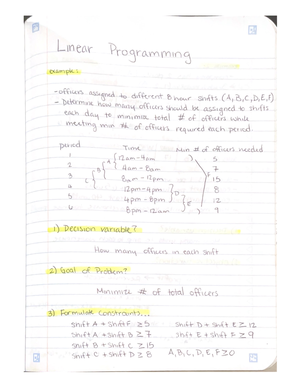 Linear Programming
example:
-officers assigned to different 8 hour shifts (A,B,C,D,E,F).
- Determine how many officers should be assigned to shifts
each day to minimize total # of officers while
meeting min # of officers required each period
period Time Min # of officers needed
1 12am-4am 5
2 A 4am-8am 7
3 B 8am-12pm 15
4 C 12pm-4pm D 8
5 4pm-8pm E 12
6 8pm-12am F 9
1) Decision variable?
How many officers in each shift
2) Goal of Problem?
Minimize # of total officers
3) Formulate constraints...
shift A + shift F ≥ 5 shift D + shift E ≥ 12
shift A + shift B ≥ 7 shift E + shift F ≥ 9
shift B + shift C ≥ 15
shift C + shift D ≥ 8 A,B,C,D,E,F ≥ 0